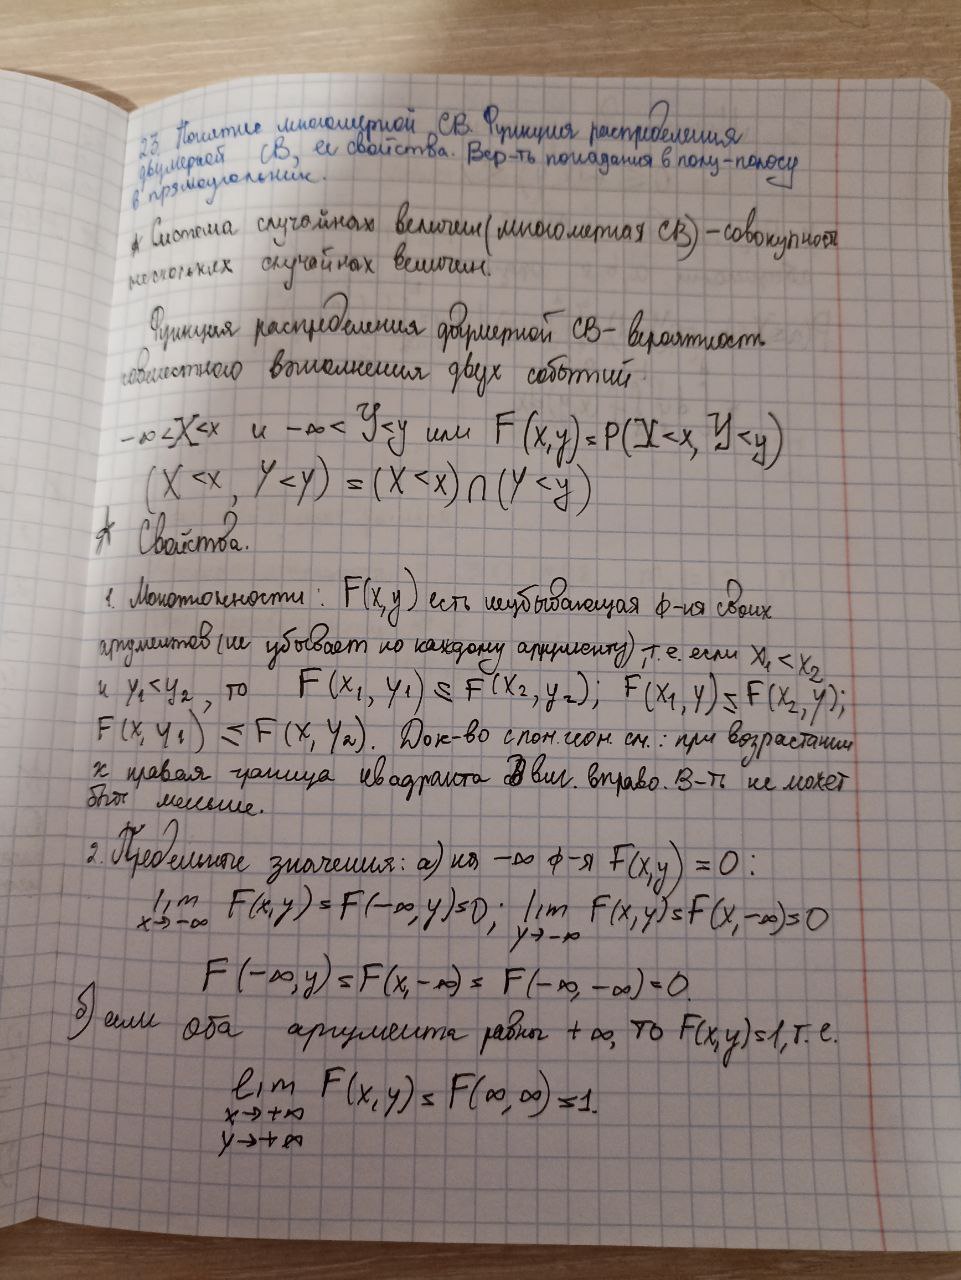 23. Понятие многомерной СВ. Функция распределения
двумерной СВ, ее свойства. Вер-ть попадания в полу-полосу
в прямоугольник.
Система случайных величин (многометная СВ) – совокупность
нескольких случайных величин.
Функция распределения двумерной СВ – вероятность
совместного выполнения двух событий
-∞<X<x и -∞<Y<y или F(x,y)=P(X<x, Y<y)
(X<x, Y<y) = (X<x)∩(Y<y)
Свойства.
1. Монотонности: F(x,y) есть неубывающая ф-ия своих
аргументов (не убывает по каждому аргументу), т.е. если x₁<x₂
и y₁<y₂, то F(x₁, y₁) ≤ F(x₂, y₂); F(x₁, y) ≤ F(x₂, y);
F(x, y₁) ≤ F(x, y₂). Док-во с см.: при возрастании
x правая граница квадранта вправо. В-ть не может
быть меньше.
2. Предельные значения: а) на -∞ ф-я F(x,y) = 0:
lim F(x,y)=F(-∞,y)=0; lim F(x,y)=F(x,-∞)=0
x→-∞ y→-∞
F(-∞,y)=F(x,-∞)= F(-∞,-∞)=0.
б) если оба аргумента равны +∞, то F(x,y)=1, т.е.
lim F(x,y)= F(∞,∞)=1.
x→+∞
y→+∞